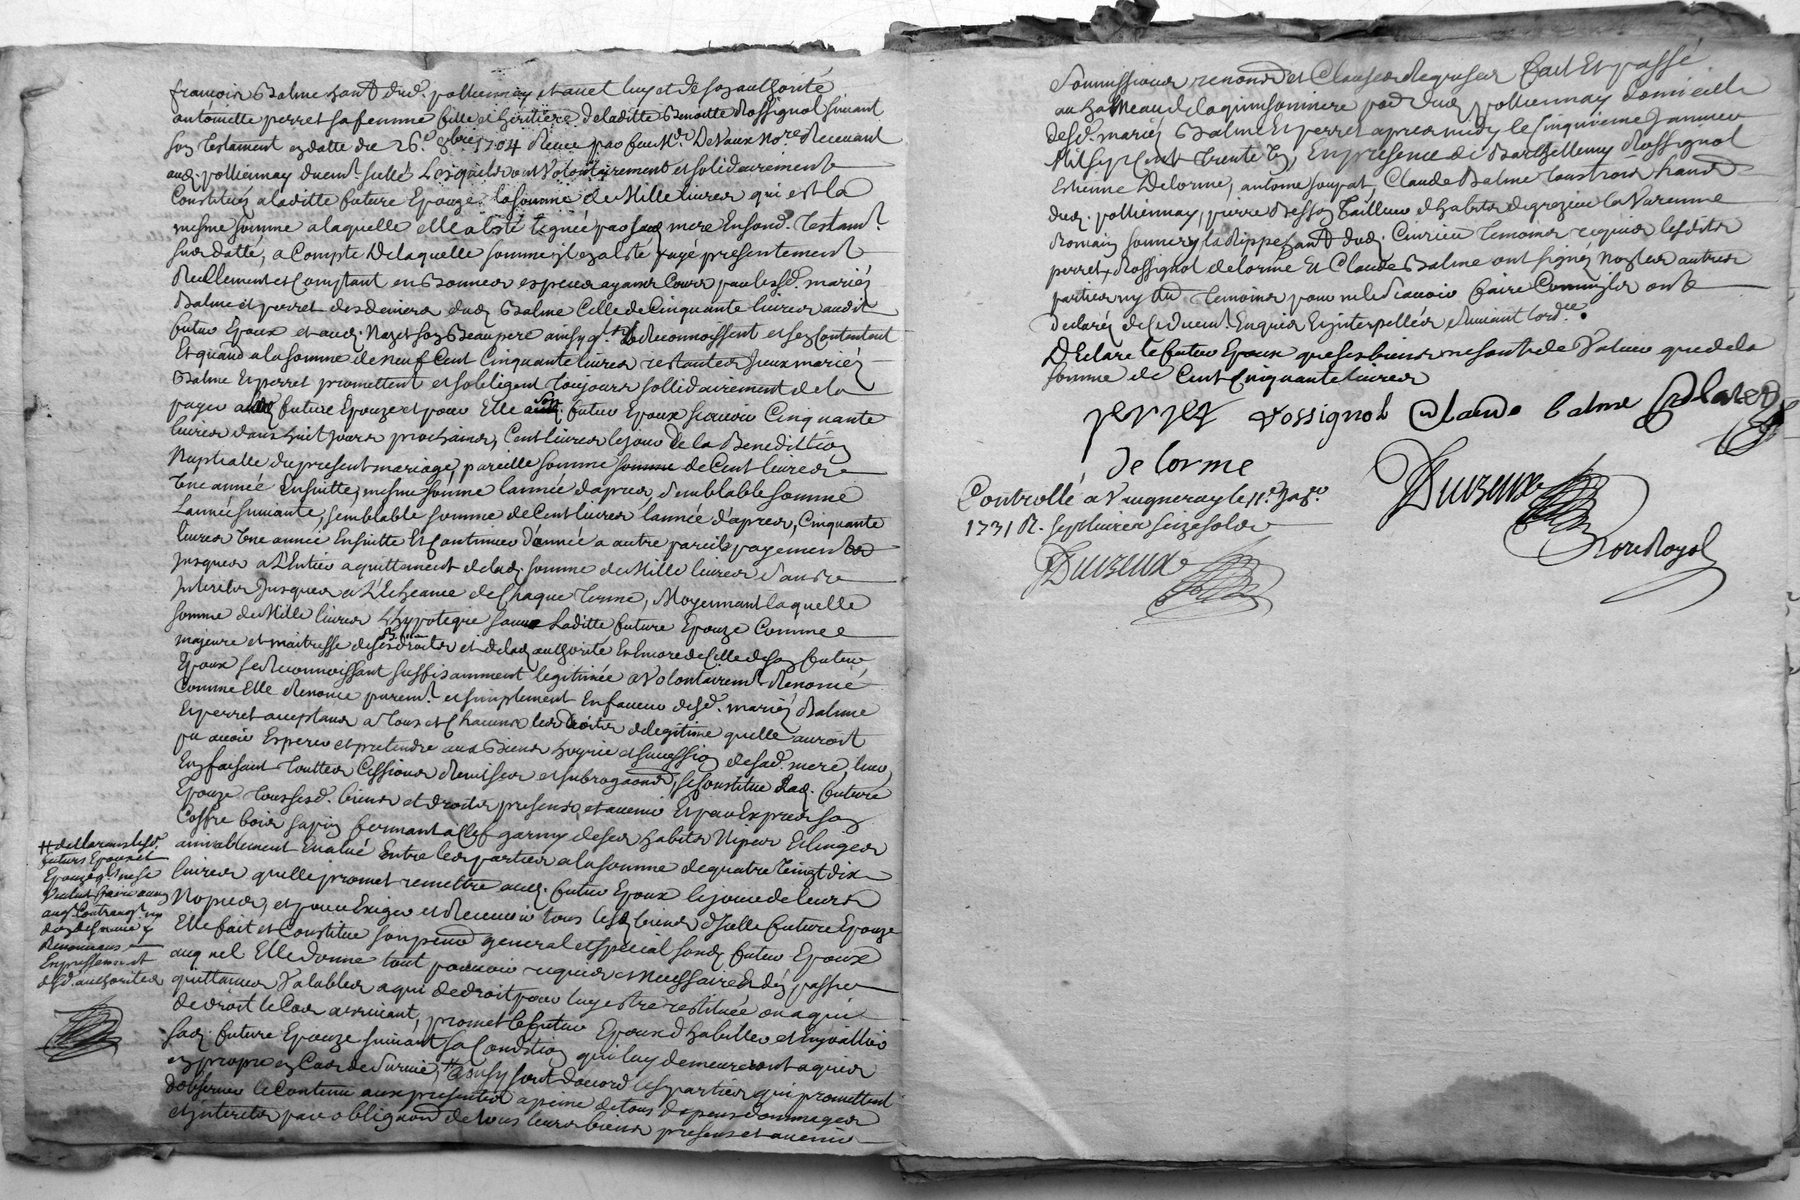 françois Balme habt dud. pollionnay et avec luy et de son authorité
antoinette perret sa femme fille et heritiere de laditte Benoitte Rossignol suivant
son testament en datte du 26e 8bre 1704 Receu par feu Me. DeVaux Nore. Recevant
aud. pollionnay duemt. scellé Lesquels ont Volontairement et solidairement
Constitués a laditte future Epouze la somme de Mille livres qui est la
mesme somme a laquelle elle a esté leguée par sad. mere En sond. Testamt.
sus datté, a Compte De laquelle somme il en a esté payé presentement
Reellement et Comptant en Bonnes especes ayant Cours par lesd. mariés
Balme et perret des deniers dud. Balme Celle de Cinquante livres audit
futur Epoux et aud. Nazet son Beaupere ainsy qls. le Reconnoissent et sen Contentent
Et quand a la somme de neuf Cent Cinquante livres restantes Iceux mariés
Balme et perret promettent et sobligent toujours sollidairement de la
payer a lad. future Epouze et pour Elle a son futur Epoux scavoir Cinquante
livres dans huit jours prochains, Cent livres le jour de la Benediction
Nuptialle du present mariage, pareille somme de Cent livres
une année Ensuitte, mesme somme lannée dapres, semblable somme
Lannée suivante, semblable somme de Cent livres lannée d'apres, Cinquante
livres une année Ensuitte Et Continuer d'année a autre pareils payements
jusques a L'Entier aquittement de lad. somme de Mille livres sans
Interests jusques a L'Echeance de Chaque terme, Moyennant laquelle
somme de Mille livres Lhypoteque sauve Laditte future Epouze Comme
majeure et maitresse de ses droits et de lad. authorité Encore de Celle de son futur
Epoux se Reconnoissant suffisamment legitimée a Volontairemt. Renoncé
Comme Elle Renonce puremt. et simplement En faveur desd. mariés Balme
et perret acceptans a tous et Chacuns les droits de legitime quelle auroit
pu avoir Esperer et pretendre aux Biens hoyrie et succession de sad. mere, leur
En faisant touttes Cessions Remises et subrogaons, se Constitue lad. future
Epouze tous sesd. biens et droits presens et avenir Et par Exprès son
Coffre bois sapin fermant a Clef garny de ses habits Nipes et linges
amiablement Evalué Entre les parties a la somme de quatre vingt dix
livres quelle promet remettre aud. futur Epoux le jour de leurs
Nopces, et pour Exiger et Recevoir tous lesd. biens d'Icelle future Epouze
Elle fait et Constitue son preur general et special sond. futur Epoux
auquel Elle donne tout pouvoir requis et necessaire Et d'en passer
quittances Valables a qui de droit pour luy estre restituée ou a qui
de droit le Cas arrivant, promet le futur Epoux d'habiller et Enjoailler
sad. future Epouze suivant sa Condition qui luy demeureront aquis
en propre en Cas de Survie, # ainsy sont daccord les parties qui promettent
dobserver le Contenu aux presentes a peine de tous depens dommages
et interets par obligaon de tous leurs biens presens et avenir
# declarans lesd.
futurs Epoux et
Epouze ql. ne se
veulent faire aucun
augt. Contraugt. ny
don de survie y
Renoncans
Expressement et
desd. authorités
Soumissions renonons et Clauses Requises fait Et passé
au hameau de laquinsonniere parr. dud. pollionnay domicille
desd. mariés Balme Et perret apres midy le Cinquieme Janvier
Mil sept Cent trente Un, En presence de Barthellemy Rossignol
Estienne Delorme, antoine soupat, Claude Balme tous trois habans
dud. pollionnay, pierre Besson tailleur d'habits de grezieu la Varenne
Romain sonnery la Rippe habt. dud. Curieu temoins requis lesdits
perret Rossignol delorme Et Claude Balme ont signés Non les autres
parties ny les temoins pour ne le Scavoir faire Comm'ils ont
declarés de Ce duemt. Enquis Et interpellés suivant lordce.
DEclare le futur Epoux que ses biens ne sont de Valeur que de la
somme de Cent Cinquante livres
perret rossignol Claude balme
de lorme
Controllé a Vaugneray le 11e. Janer.
1731 R. sept livres seize sols